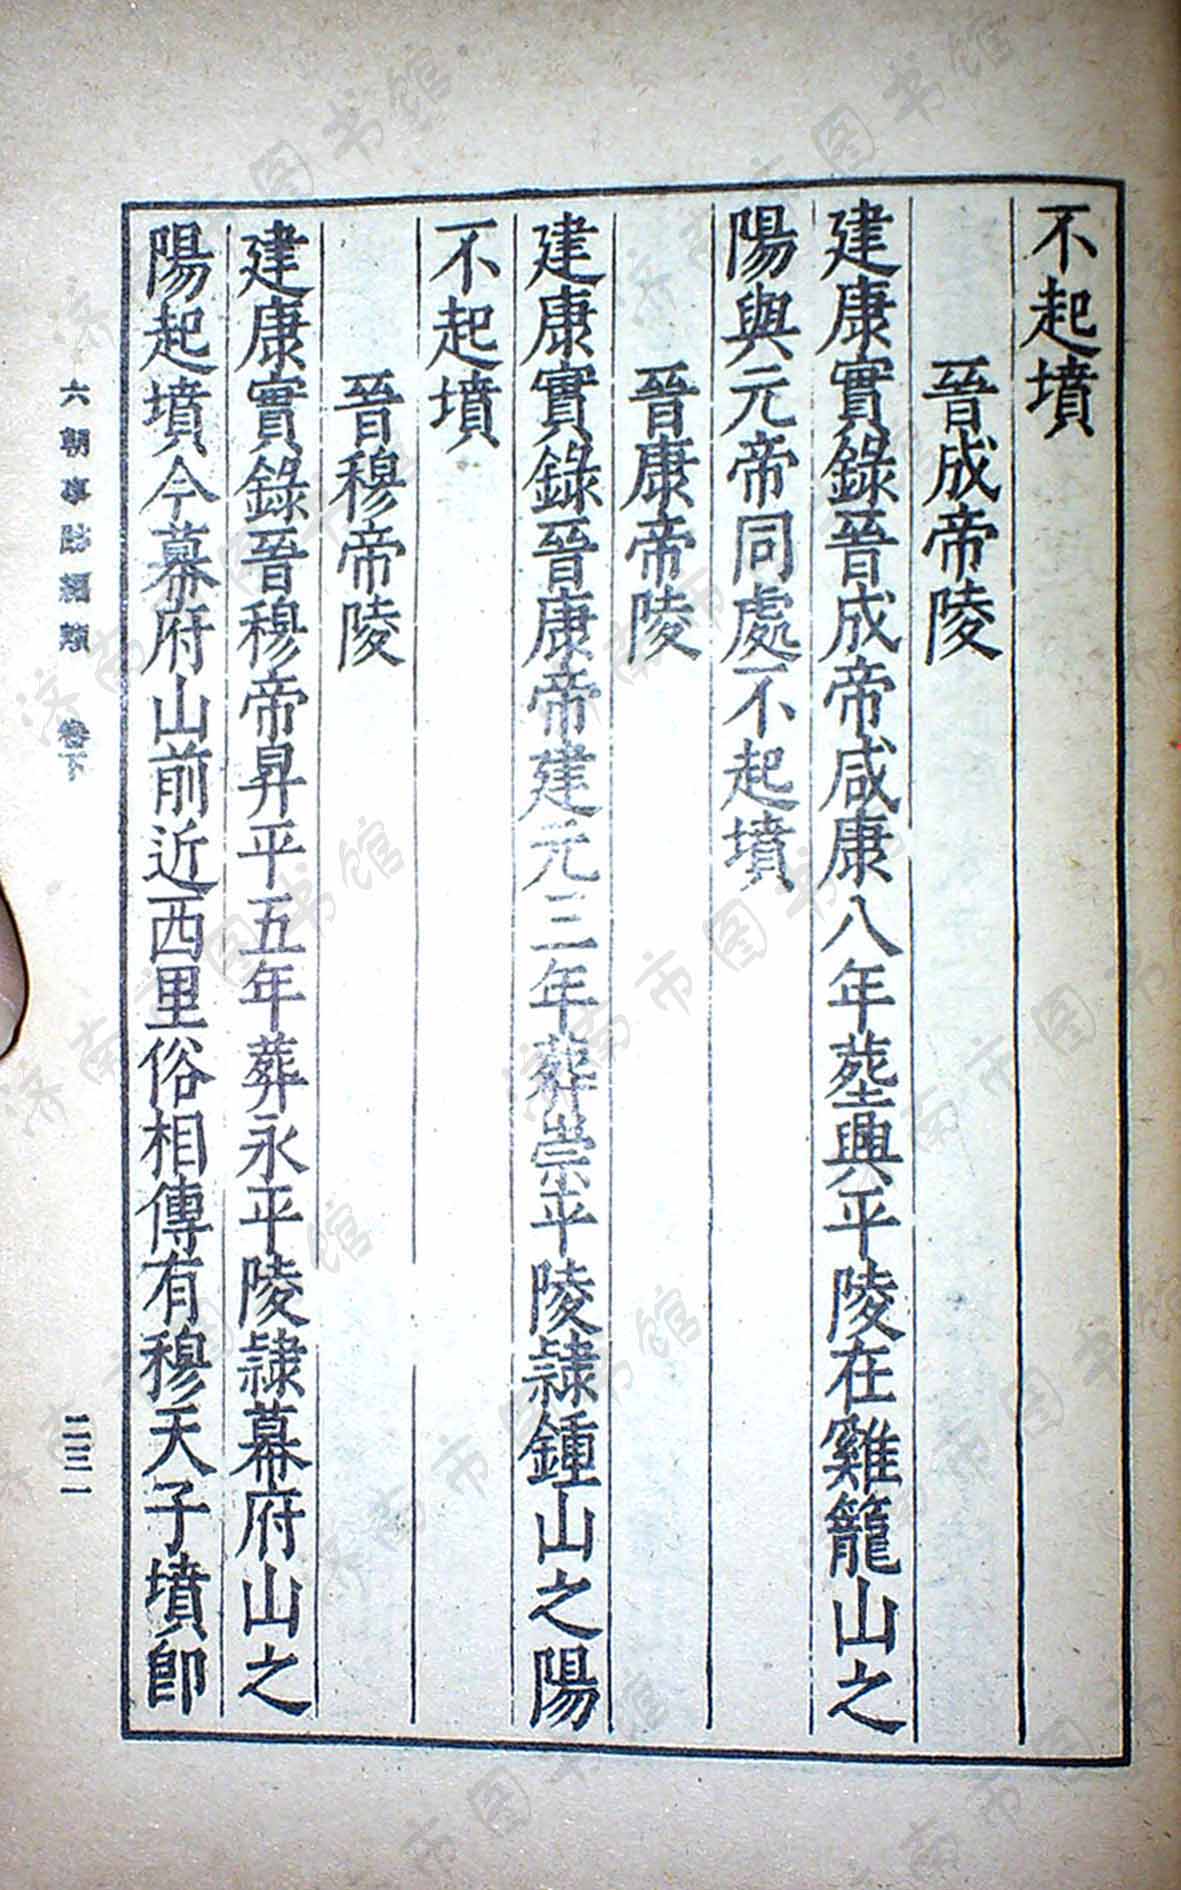 不起墳
晉成帝陵
建康實錄晉成帝咸康八年塟興平陵在雞籠山之
陽與元帝同處不起墳
晉康帝陵
建康實錄晉康帝建元三年葬崇平陵隸鍾山之陽
不起墳
晉穆帝陵
建康實錄晉穆帝昇平五年葬永平陵隸幕府山之
陽起墳今幕府山前近西里俗相傳有穆天子墳即
六朝事跡編類 卷下
二三一
济南市图书馆